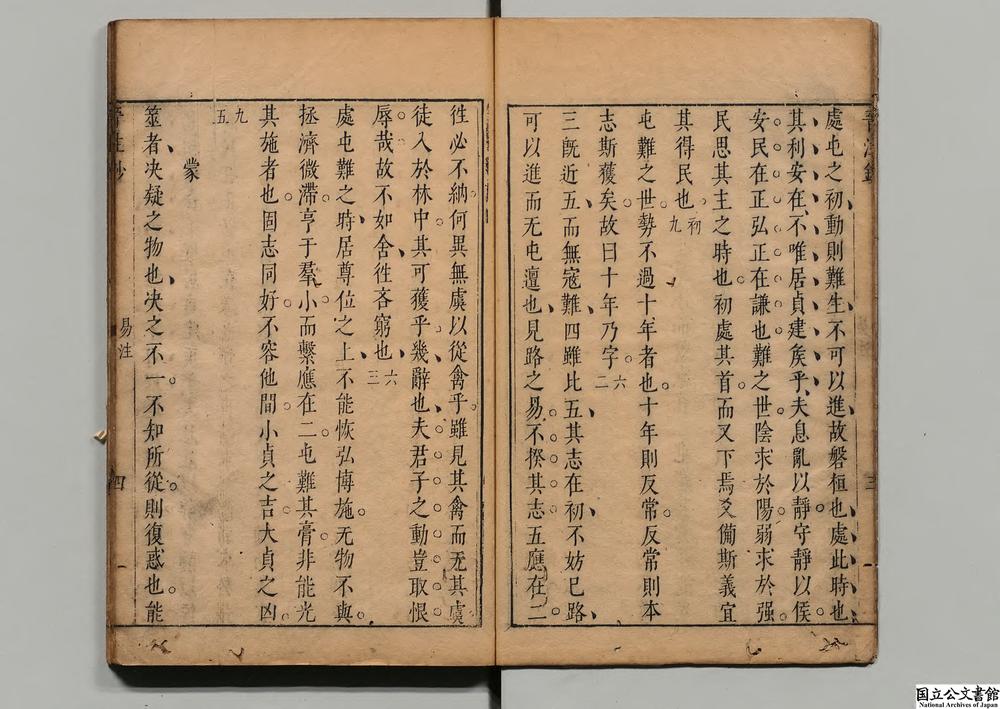 處屯之初動則難生不可以進故磐桓也處此時也
其利安在不唯居貞建矦乎夫息亂以靜守靜以侯
安民在正弘正在謙也難之世陰求於陽弱求於强
民思其主之時也初處其首而又下焉爻備斯義宜
其得民也 初九
屯難之世勢不過十年者也十年則反常反常則本
志斯獲矣故曰十年乃字 六二
三旣近五而無寇難四雖比五其志在初不妨已路
可以進而无屯邅也見路之易不揆其志五應在二
徃必不納何異無虞以從禽乎雖見其禽而无其虞
徒入於林中其可獲乎幾辭也夫君子之動豈取恨
辱哉故不如舍徃吝窮也 六三
處屯難之時居尊位之上不能恢弘博施无物不與
拯濟微滯亨于羣小而繫應在二屯難其膏非能光
其施者也固志同好不容他間小貞之吉大貞之凶
九五
蒙
筮者决疑之物也决之不一不知所從則復惑也能
易注
四
三
国立公文書館
National Archives of Japan